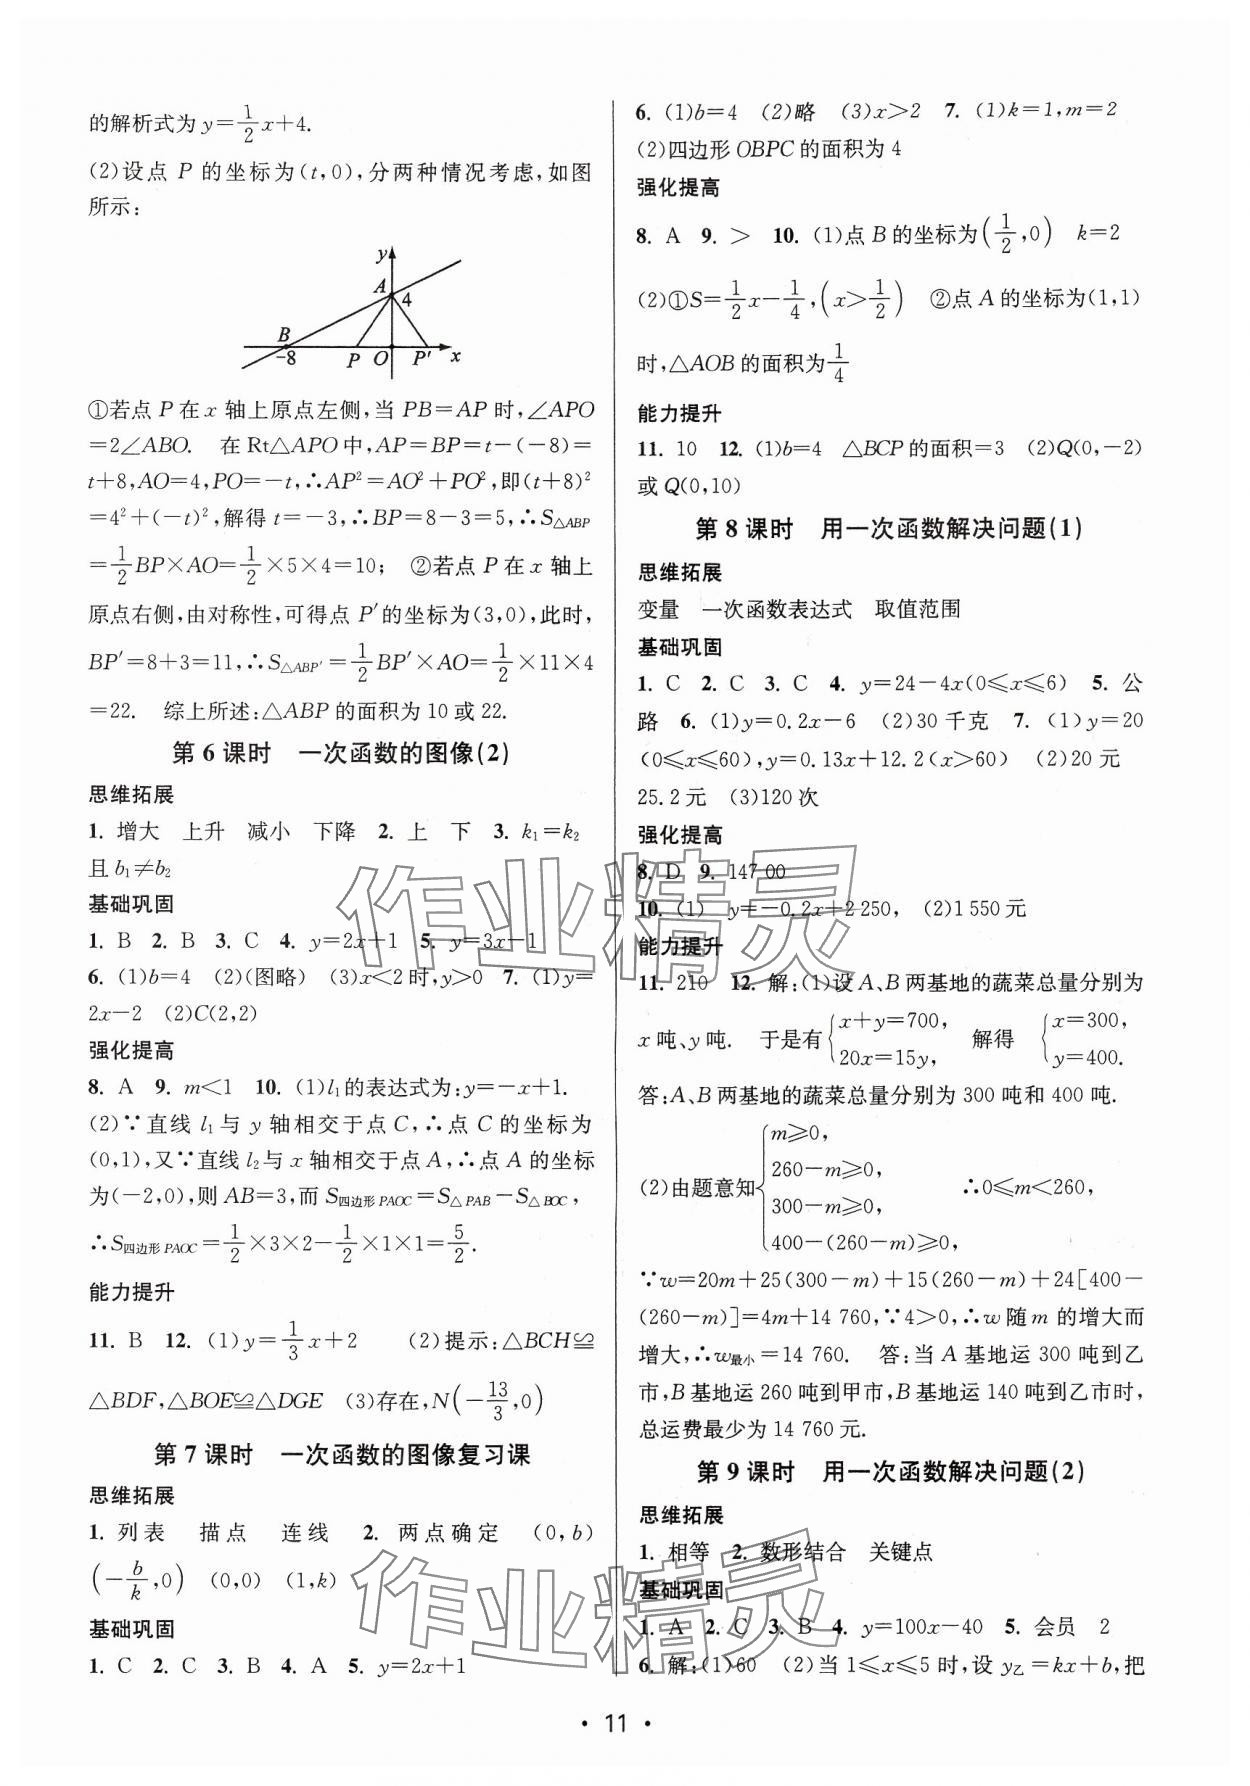 的解析式为 y=1/2x+4.
(2)设点 P 的坐标为(t,0),分两种情况考虑,如图
所示:
y
A
4
B
-8
P
O
P′
x
①若点 P 在 x 轴上原点左侧,当 PB=AP 时,∠APO
=2∠ABO. 在 Rt△APO 中,AP=BP=t-(-8)=
t+8,AO=4,PO=-t,∴AP²=AO²+PO²,即(t+8)²
=4²+(-t)²,解得 t=-3,∴BP=8-3=5,∴S△ABP
=1/2BP×AO=1/2×5×4=10; ②若点 P 在 x 轴上
原点右侧,由对称性,可得点 P′的坐标为(3,0),此时,
BP′=8+3=11,∴S△ABP′=1/2BP′×AO=1/2×11×4
=22. 综上所述:△ABP 的面积为 10 或 22.
第 6 课时 一次函数的图像(2)
思维拓展
1. 增大 上升 减小 下降 2. 上 下 3. k₁=k₂
且 b₁≠b₂
基础巩固
1. B 2. B 3. C 4. y=2x+1 5. y=3x-1
6. (1)b=4 (2)(图略) (3)x<2 时,y>0 7. (1)y=
2x-2 (2)C(2,2)
强化提高
8. A 9. m<1 10. (1)l₁的表达式为:y=-x+1.
(2)∵直线 l₁与 y 轴相交于点 C,∴点 C 的坐标为
(0,1),又∵直线 l₂与 x 轴相交于点 A,∴点 A 的坐标
为(-2,0),则 AB=3,而 S四边形PAOC=S△PAB-S△BOC,
∴S四边形PAOC=1/2×3×2-1/2×1×1=5/2.
能力提升
11. B 12. (1)y=1/3x+2 (2)提示:△BCH≌
△BDF,△BOE≌△DGE (3)存在,N(-13/3,0)
第 7 课时 一次函数的图像复习课
思维拓展
1. 列表 描点 连线 2. 两点确定 (0,b)
(-b/k,0) (0,0) (1,k)
基础巩固
1. C 2. C 3. B 4. A 5. y=2x+1
6. (1)b=4 (2)略 (3)x>2 7. (1)k=1,m=2
(2)四边形 OBPC 的面积为 4
强化提高
8. A 9. > 10. (1)点 B 的坐标为(1/2,0) k=2
(2)①S=1/2x-1/4,(x>1/2) ②点 A 的坐标为(1,1)
时,△AOB 的面积为1/4
能力提升
11. 10 12. (1)b=4 △BCP 的面积=3 (2)Q(0,-2)
或 Q(0,10)
第 8 课时 用一次函数解决问题(1)
思维拓展
变量 一次函数表达式 取值范围
基础巩固
1. C 2. C 3. C 4. y=24-4x(0≤x≤6) 5. 公
路 6. (1)y=0.2x-6 (2)30 千克 7. (1)y=20
(0≤x≤60),y=0.13x+12.2(x>60) (2)20 元
25.2 元 (3)120 次
强化提高
8. D 9. 147 00
10. (1) y=-0.2x+2 250, (2)1 550 元
能力提升
11. 210 12. 解:(1)设 A、B 两基地的蔬菜总量分别为
x 吨、y 吨. 于是有{x+y=700, 20x=15y, 解得 {x=300, y=400.
答:A、B 两基地的蔬菜总量分别为 300 吨和 400 吨.
(2)由题意知{m≥0, 260-m≥0, 300-m≥0, 400-(260-m)≥0, ∴0≤m<260,
∵w=20m+25(300-m)+15(260-m)+24[400-
(260-m)]=4m+14 760,∵4>0,∴w 随 m 的增大而
增大,∴w最小=14 760. 答:当 A 基地运 300 吨到乙
市,B 基地运 260 吨到甲市,B 基地运 140 吨到乙市时,
总运费最少为 14 760 元.
第 9 课时 用一次函数解决问题(2)
思维拓展
1. 相等 2. 数形结合 关键点
基础巩固
1. A 2. C 3. B 4. y=100x-40 5. 会员 2
6. 解:(1)60 (2)当 1≤x≤5 时,设 y乙=kx+b,把
作业精灵
作业精灵
• 11 •